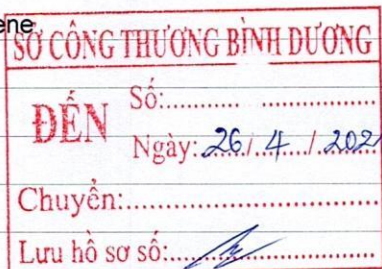 ene
SỞ CÔNG THƯƠNG BÌNH DƯƠNG
ĐẾN
Số:........... ..................
Ngày: 26 / 4 / 2021
Chuyển:................................
Lưu hồ sơ số:.....................